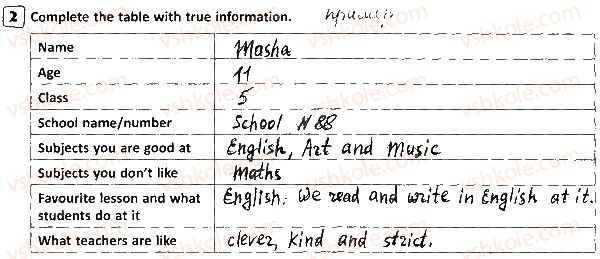 2 Complete the table with true information.
Name Masha
Age 11
Class 5
School name/number School N 88
Subjects you are good at English, Art and Music
Subjects you don't like Maths
Favourite lesson and what English. We read and write in English at it.
students do at it
What teachers are like clever, kind and strict.